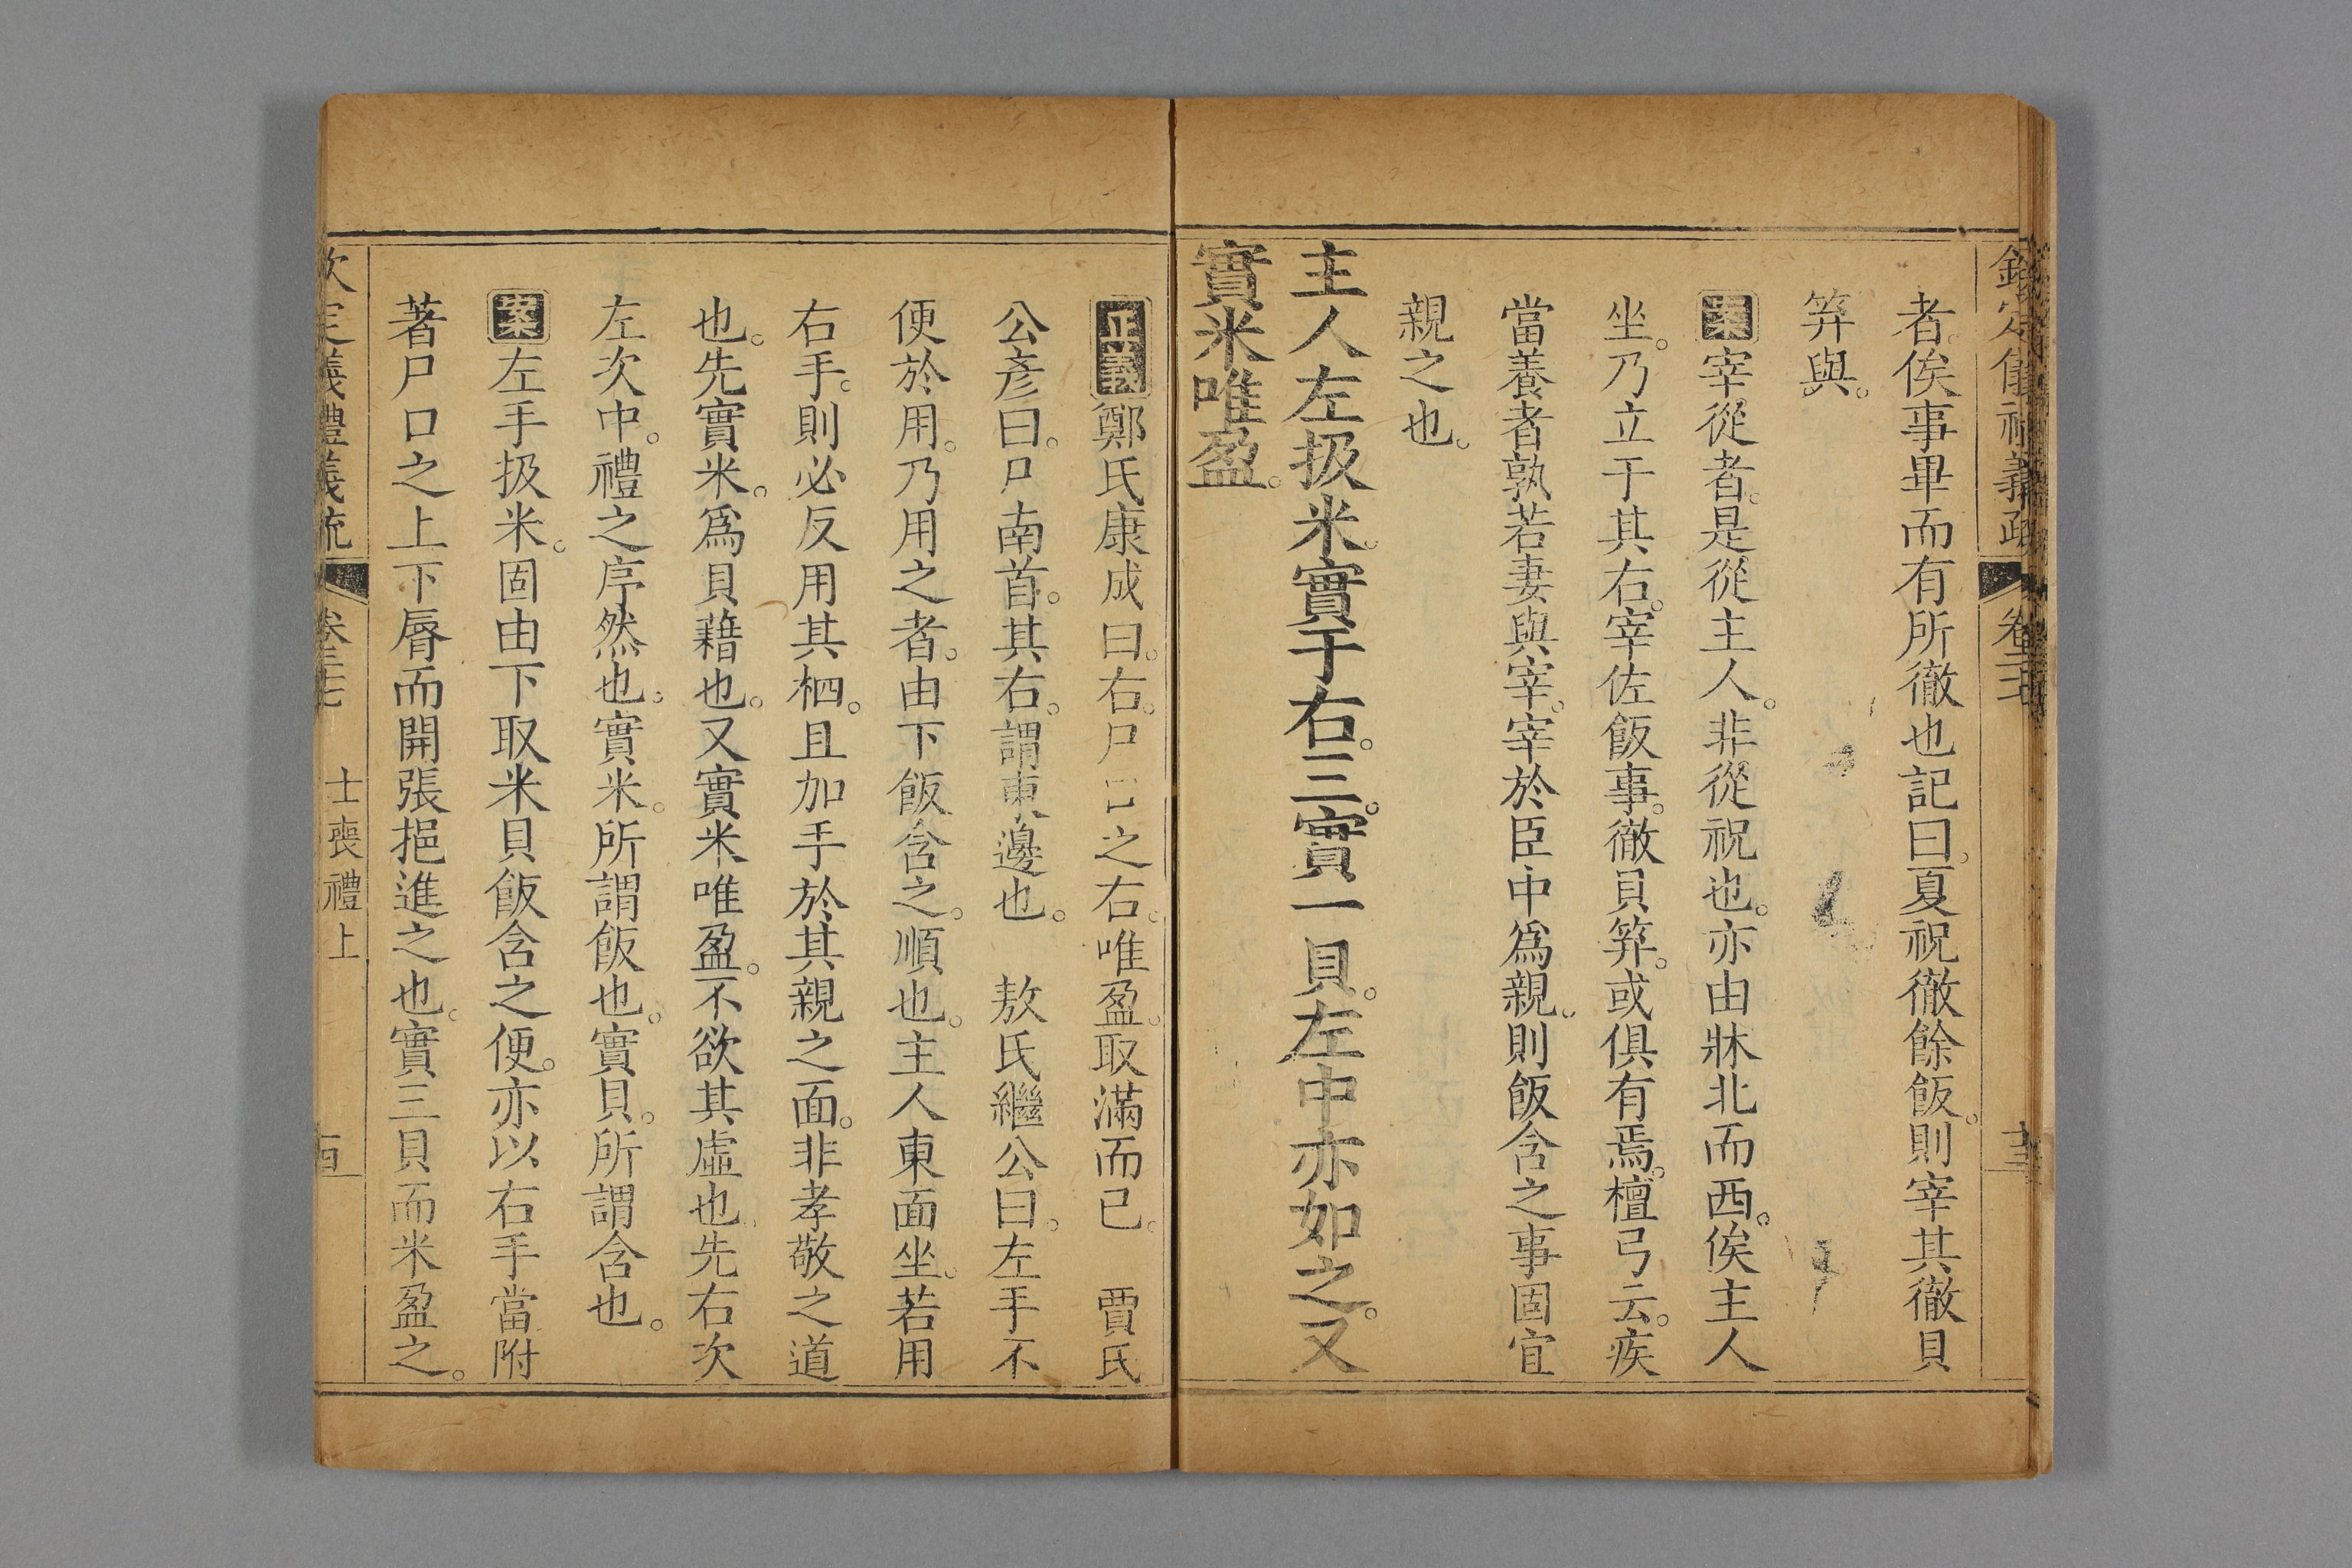 欽定儀禮義疏 卷二十七 十三
者俟事畢而有所徹也記曰夏祝徹餘飯。則宰其徹貝
笲與。
案宰從者。是從主人。非從祝也。亦由牀北而西。俟主人
坐。乃立于其右。宰佐飯事。徹貝笲。或俱有焉。檀弓云。疾
當養者孰若妻與宰。宰於臣中爲親。則飯含之事固宜
親之也。
主人左扱米。實于右。三。實一貝。左中亦如之。又
實米唯盈。
正義鄭氏康成曰。右。尸口之右。唯盈。取滿而已。 賈氏
公彥曰。尸南首。其右。謂東邊也。 敖氏繼公曰。左手不
便於用。乃用之者。由下飯含之。順也。主人東面坐。若用
右手。則必反用其柶。且加手於其親之面。非孝敬之道
也。先實米。爲貝藉也。又實米唯盈。不欲其虛也。先右次
左次中。禮之序然也。實米。所謂飯也。實貝。所謂含也。
案左手扱米。固由下取米貝飯含之便。亦以右手當附
著尸口之上下脣而開張挹進之也。實三貝而米盈之。
欽定義禮義疏 卷二十七 士喪禮上